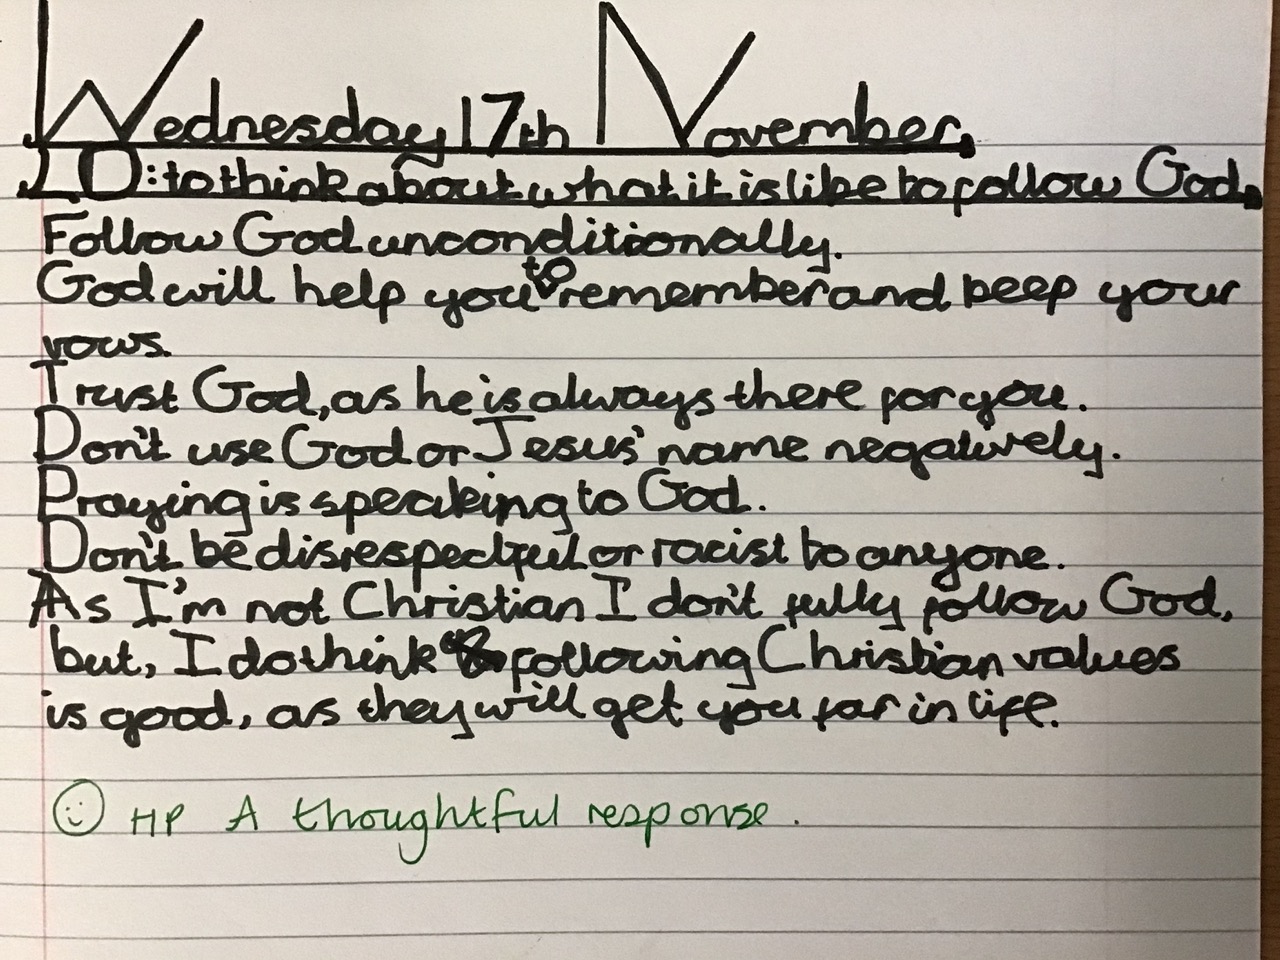 Wednesday 17th November.
LO: to think about what it is like to follow God.
Follow God unconditionally.
God will help you to remember and keep your
vows.
Trust God, as he is always there for you.
Don't use God or Jesus' name negatively.
Praying is speaking to God.
Don't be disrespectful or racist to anyone.
As I'm not Christian I don't fully follow God,
but, I do think following Christian values
is good, as they will get you far in life.
HP A thoughtful response.